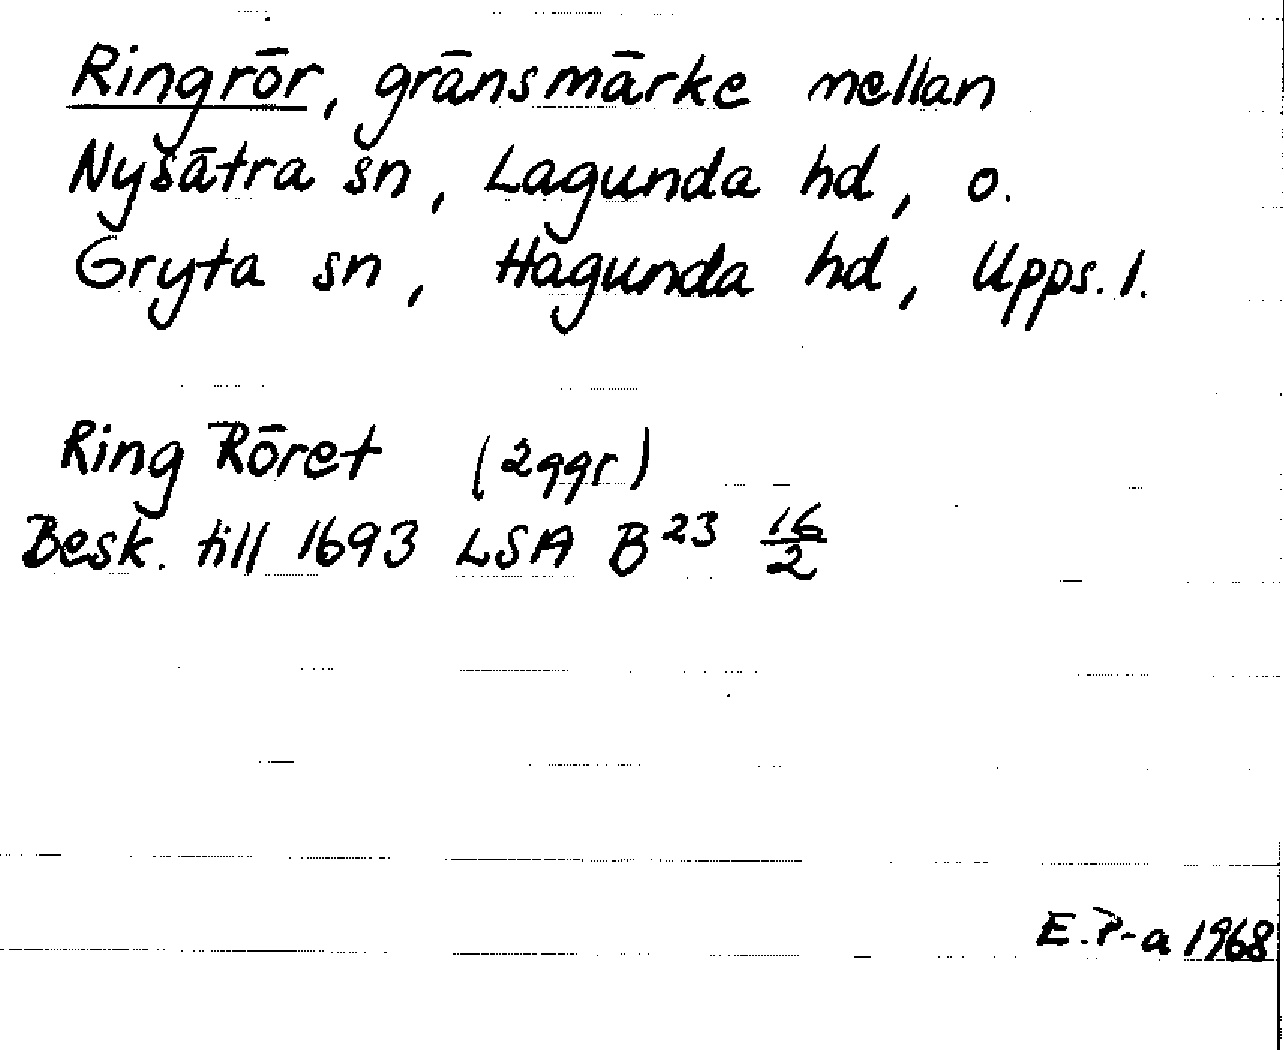 Ringrör, gränsmärke mellan
Nysätra sn, Lagunda hd, o.
Gryta sn, Hagunda hd, Upps. l.
Ring Röret (2ggr)
Besk. till 1693 LSA B 23 16/2
E.P-a 1968